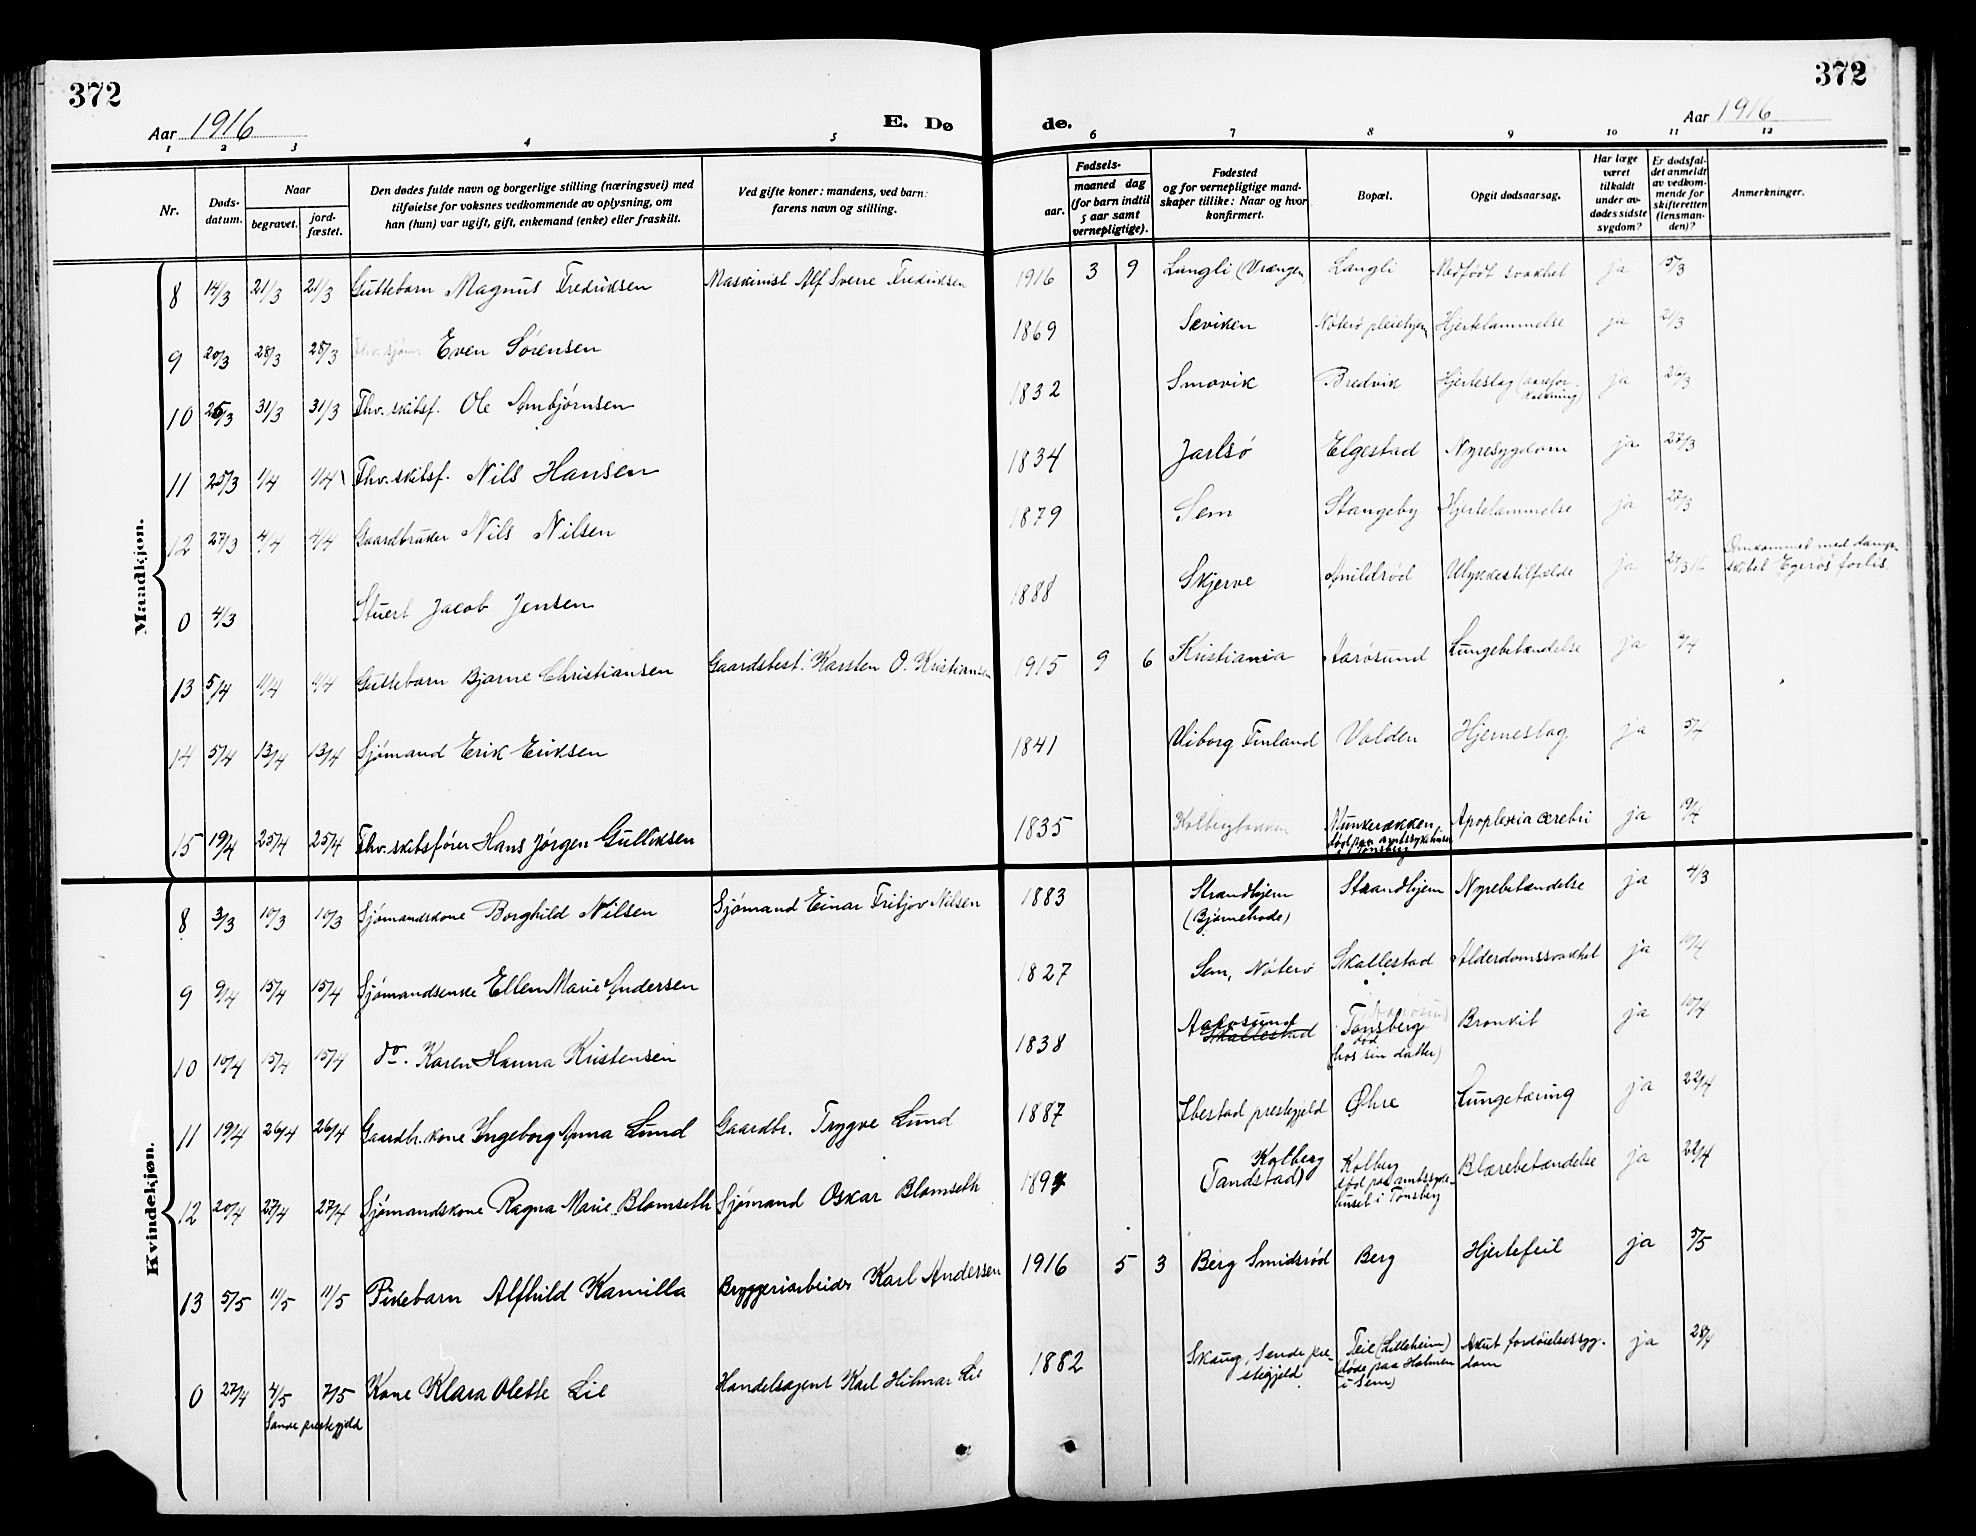 372
372
Aar 1916
E. Dø
de.
Aar 1916
1 2 3 4 5 6 7 8 9 10 11 12
Nr.
Døds-
datum.
Naar
begravet.
jord-
fæstet.
Den dødes fulde navn og borgerlige stilling (næringsvei) med
tilføielse for voksnes vedkommende av oplysning, om
han (hun) var ugift, gift, enkemand (enke) eller fraskilt.
Ved gifte koner: mandens, ved barn:
farens navn og stilling.
Fødsels-
aar.
maaned dag
(for barn indtil
5 aar samt
vernepligtige).
Fødested
og for vernepligtige mand-
skaper tillike: Naar og hvor
konfirmert.
Bopæl.
Opgit dødsaarsag.
Har læge
været
tilkaldt
under av-
dødes sidste
sygdom?
Er dødsfal-
det anmeldt
av vedkom-
mende for
skifteretten
(lensman-
den)?
Anmerkninger.
Mandkjøn.
8 14/3 21/3 21/3 Guttebarn Magnus Fredriksen Maskinist Alf Sverre Fredriksen 1916 3 9 Langli (Vrængen) Langli Medfødt svakhet ja 15/3
9 20/3 28/3 28/3 Fhv. sjøm. Even Sørensen 1869 Seviken Nøterø pleiehjem Hjertelammelse ja 21/3
10 25/3 31/3 31/3 Fhv. skibsf. Ole Ambjørnsen 1832 Smovik Bredvik Hjerteslag (aarefor-
kalkning) ja
11 25/3 1/4 1/4 Fhv. skibsf. Nils Hansen 1834 Jarlsø Elgestad Nyresygdom ja 27/3
12 27/3 4/4 4/4 Gaardbruker Nils Nilsen 1879 Sem Stangeby Hjertelammelse ja
0 4/3 Stuert Jacob Jensen 1888 Skjerve Anildrød Ulykkestilfælde ja Omkommet med damp-
skibet Egerøs forlis
13 5/4 11/4 11/4 Guttebarn Bjarne Christiansen Gaardsbest. Karsten O. Kristiansen 1915 9 6 Kristiania Aarøsund Lungebetændelse ja
14 5/4 13/4 13/4 Sjømand Erik Eriksen 1841 Viborg Finland Valden Hjerneslag ja 5/4
15 19/4 25/4 25/4 Fhv. skibsfører Hans Jørgen Gulliksen 1835 Kolbergbakken Munkerækken, Apoplexia cerebri ja 19/4
død paa amtssykehuset
i Tønsberg
Kvindekjøn.
8 3/3 10/3 10/3 Sjømandskone Borghild Nilsen Sjømand Einar Fritjov Nilsen 1883 Strandhjem Strandhjem Nyrebetændelse ja 4/3
(Bjørnehode)
9 9/4 15/4 15/4 Sjømandsenke Ellen Marie Andersen 1827 Sem, Nøterø Skallestad Alderdomssvakhet ja 10/4
10 10/4 15/4 15/4 do. Karen Hanna Kristensen 1838 Aarøsund Skallestad Tønsberg Bronkit ja 10/4
død
(hos sin datter)
11 19/4 26/4 26/4 Gaardbr. kone Yngeborg Anna Lund Gaardbr. Trygve Lund 1887 Ibestad prestegjeld Øhre Lungetæring ja 22/4
12 20/4 27/4 27/4 Sjømandskone Ragna Marie Blomseth Sjømand Oskar Blomseth Kolberg
(Tandstad) Kolberg Blærebetændelse ja
død paa amtssyke-
huset i Tønsberg
13 5/5 11/5 11/5 Pikebarn Alfhild Kamilla Bryggeriarbeider Karl Andersen 1916 5 3 Berg Smidsrød Berg Hjertefeil ja 5/5
0 27/4 4/5 7/5 Kone Klara Olette Lie Handelsagent Karl Hilmar Lie 1882 Skaug, Sande pre-
stegjeld Teie (Lilleheim) Akut fordøielsessyg-
dom ja 28/4
(døde paa Holmen
i Sem)
Sande prestegjeld